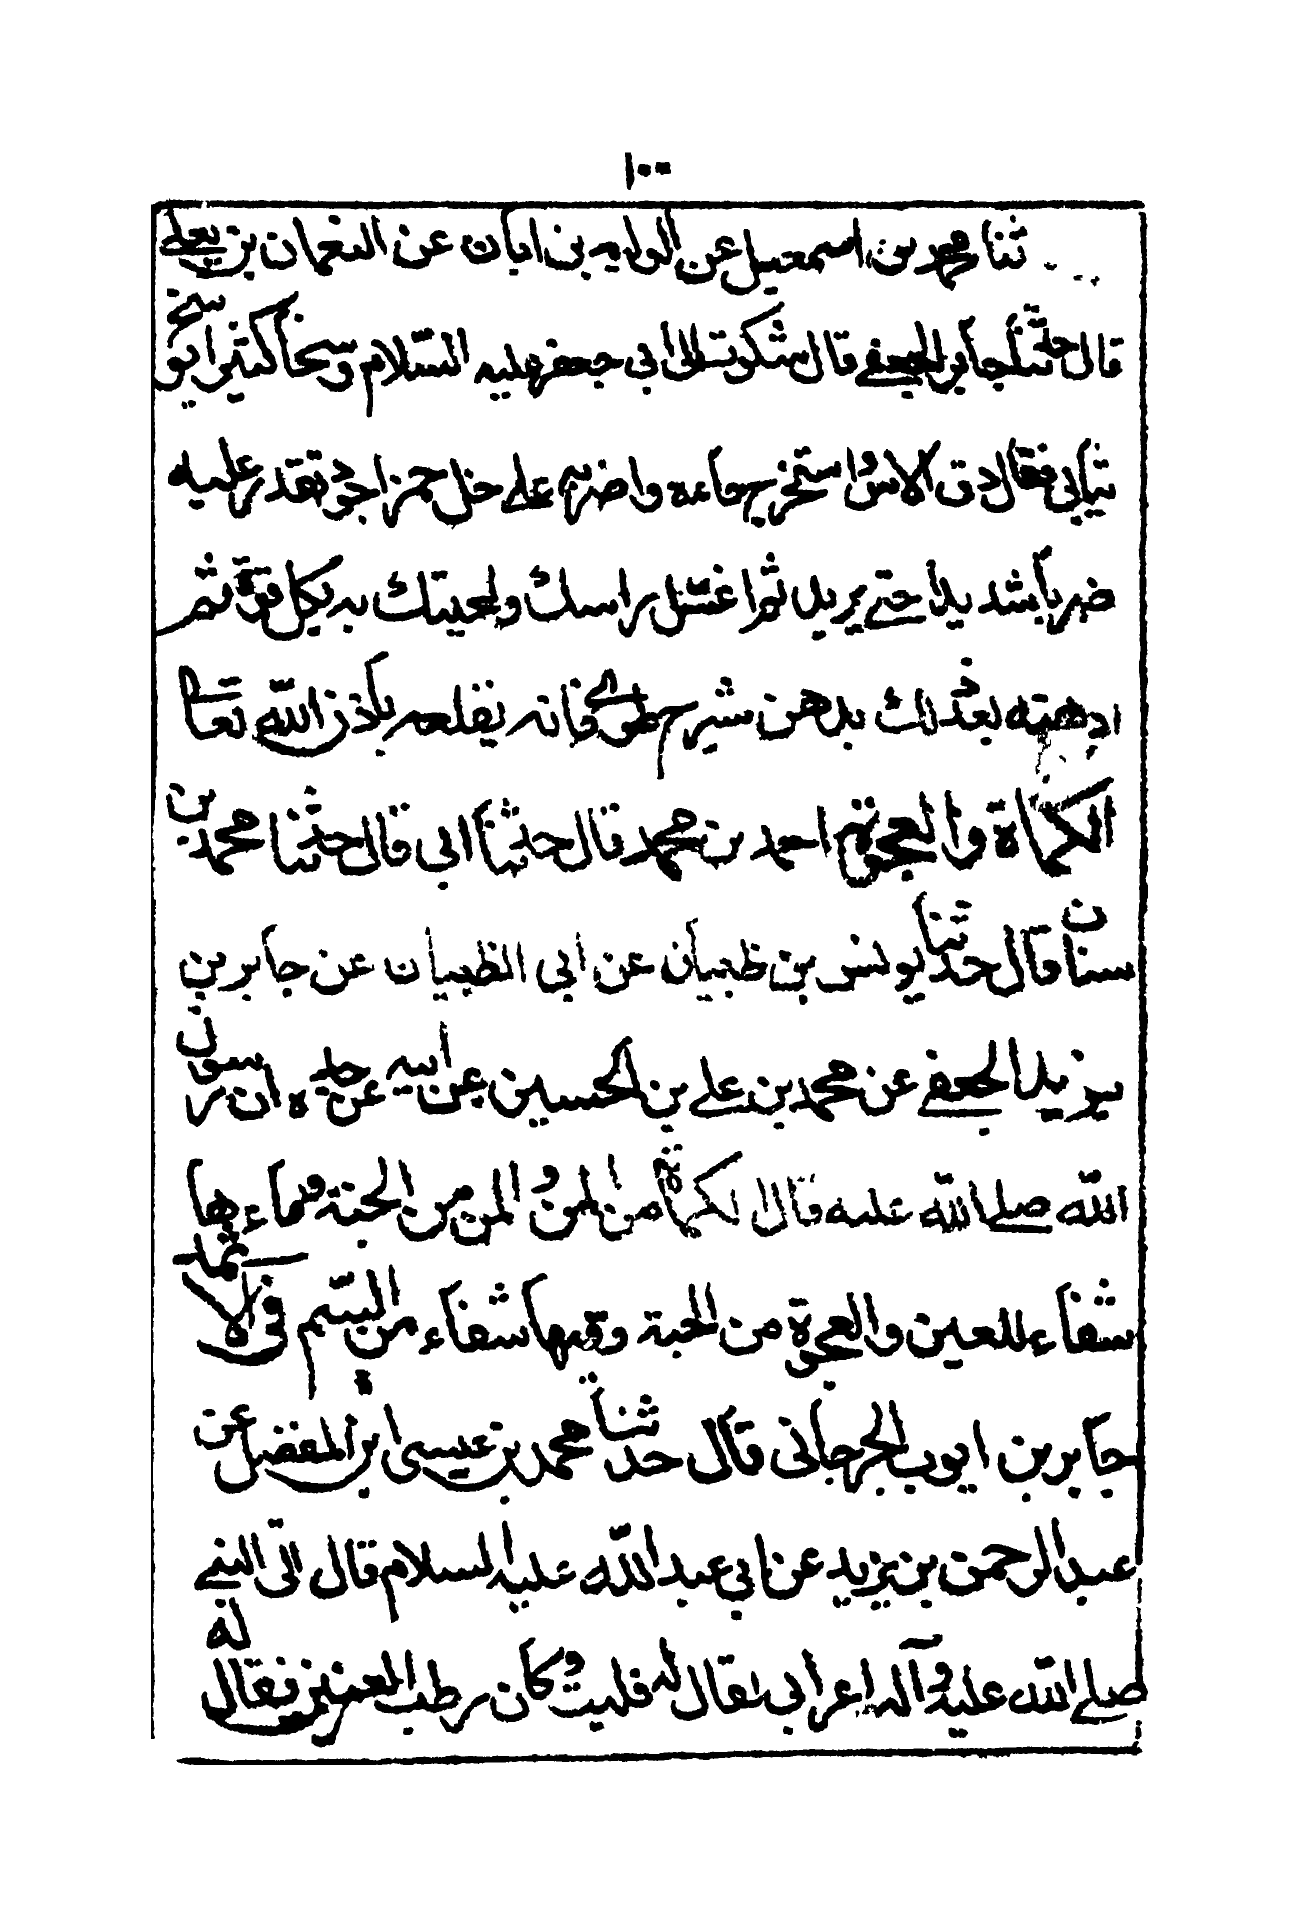 ١٠٠
ثنا محمد بن اسمعيل عن الوليد بن ابان عن النعمان بن يعلى
قال حدثنا جابر الجعفي قال شكوت الى ابي جعفر عليه السلام وسخا كثيرا يوسخ
ثيابي فقال دق الاس واستخرج ماءه واضربه على خل خمر اجود تقدر عليه
ضربا شديدا حتى يزيد ثم اغسل راسك ولحيتك به بكل قوة ثم
ادهنه بعد ذلك بدهن شيرج طري فانه يقلعه باذن الله تعالى
الكماة والعجوة احمد بن محمد قال حدثنا ابي قال حدثنا محمد بن
سنان قال حدثنا يونس بن ظبيان عن ابي الظبيان عن جابر بن
يزيد الجعفي عن محمد بن علي بن الحسين عن ابيه عن جده ان رسول
الله صلى الله عليه قال الكماة من المن والمن من الجنة وماءها
شفاء للعين والعجوة من الجنة وفيها شفاء من السم في الاثمد
جابر بن ايوب الجرجاني قال حدثنا محمد بن عيسى ابن المفضل عن
عبد الرحمن بن يزيد عن ابي عبد الله عليه السلام قال اتى النبي
صلى الله عليه وآله اعرابي يقال له قليت وكان رطب العينين فقال له